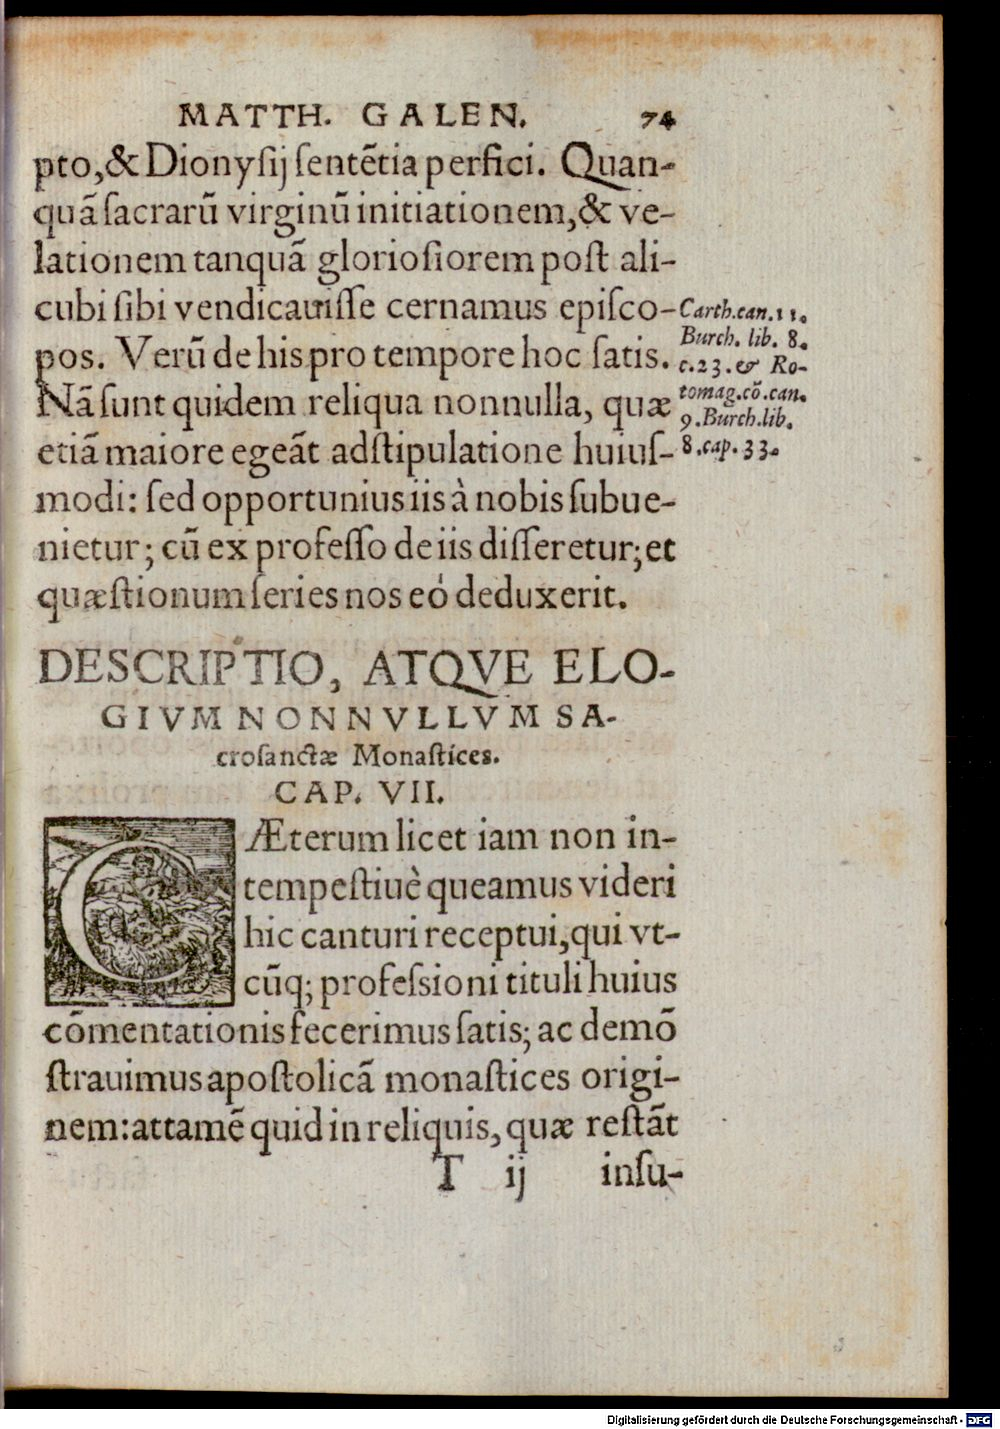 MATTH. GALEN. 74
pto,& Dionyſij ſentētia perfici. Quan-
quā ſacrarū virginū initiationem,& ve-
lationem tanquā glorioſiorem poſt ali-
cubi ſibi vendicauiſſe cernamus epiſco-
pos. Verū de his pro tempore hoc ſatis.
Nā ſunt quidem reliqua nonnulla, quæ
etiā maiore egeāt adſtipulatione huiuſ-
modi: ſed opportunius iis à nobis ſubue-
nietur; cū ex profeſſo de iis diſſeretur; et
quæſtionum ſeries nos eó deduxerit.
Carth.can.11.
Burch. lib. 8.
c.23. & Ro-
tomag.cō.can.
9.Burch.lib.
8.cap.33.
DESCRIPTIO, ATQVE ELO-
GIVM NONNVLLVM SA-
croſanctæ Monaſtices.
CAP. VII.
CÆterum licet iam non in-
tempeſtiuè queamus videri
hic canturi receptui,qui vt-
cūq; profeſsioni tituli huius
cōmentationis fecerimus ſatis; ac demō
ſtrauimus apoſtolicā monaſtices origi-
nem: attamē quid in reliquis, quæ reſtāt
T ij inſu-
Digitalisierung gefördert durch die Deutsche Forschungsgemeinschaft - DFG